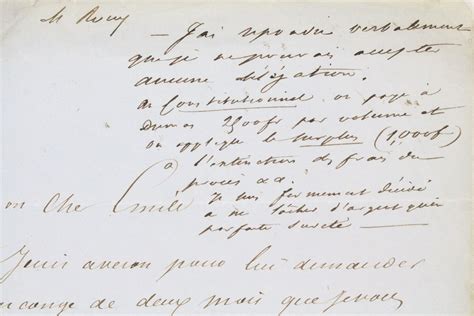 M Rouy
— J'ai répondu verbalement
que je ne pouvais accepter
aucune délégation.
au Constitutionnel on paye à
Dumas 2500fr par volume et
on applique le surplus (1,000f)
à l'extinction des frais du
procès &a.
Je suis fermement décidé
à ne lâcher d'argent qu'en
parfaite sureté —
on cher Emile
pour lui demander
un congé de deux mois que